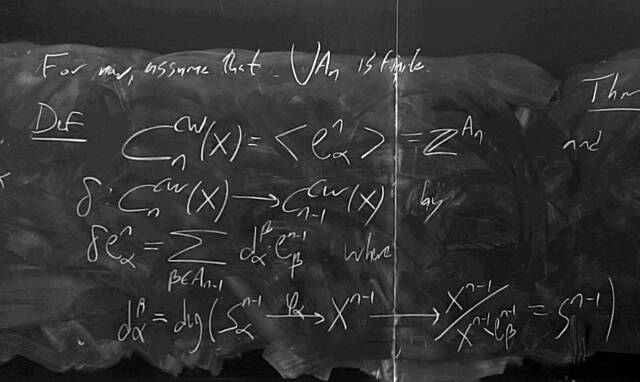 For now, assume that ⋃Aₙ is finite.
Thm
Def C_n^{CW}(X) = <e_α^n> = ℤ^{A_n}
and
δ: C_n^{CW}(X) → C_{n-1}^{CW}(X) by
δe_α^n = ∑_{β∈A_{n-1}} d_α^β e_β^{n-1} where
d_α^β = deg(S_α^{n-1} →^{φ_α} X^{n-1} → X^{n-1}/X^{n-1}-e_β^{n-1} = S^{n-1})